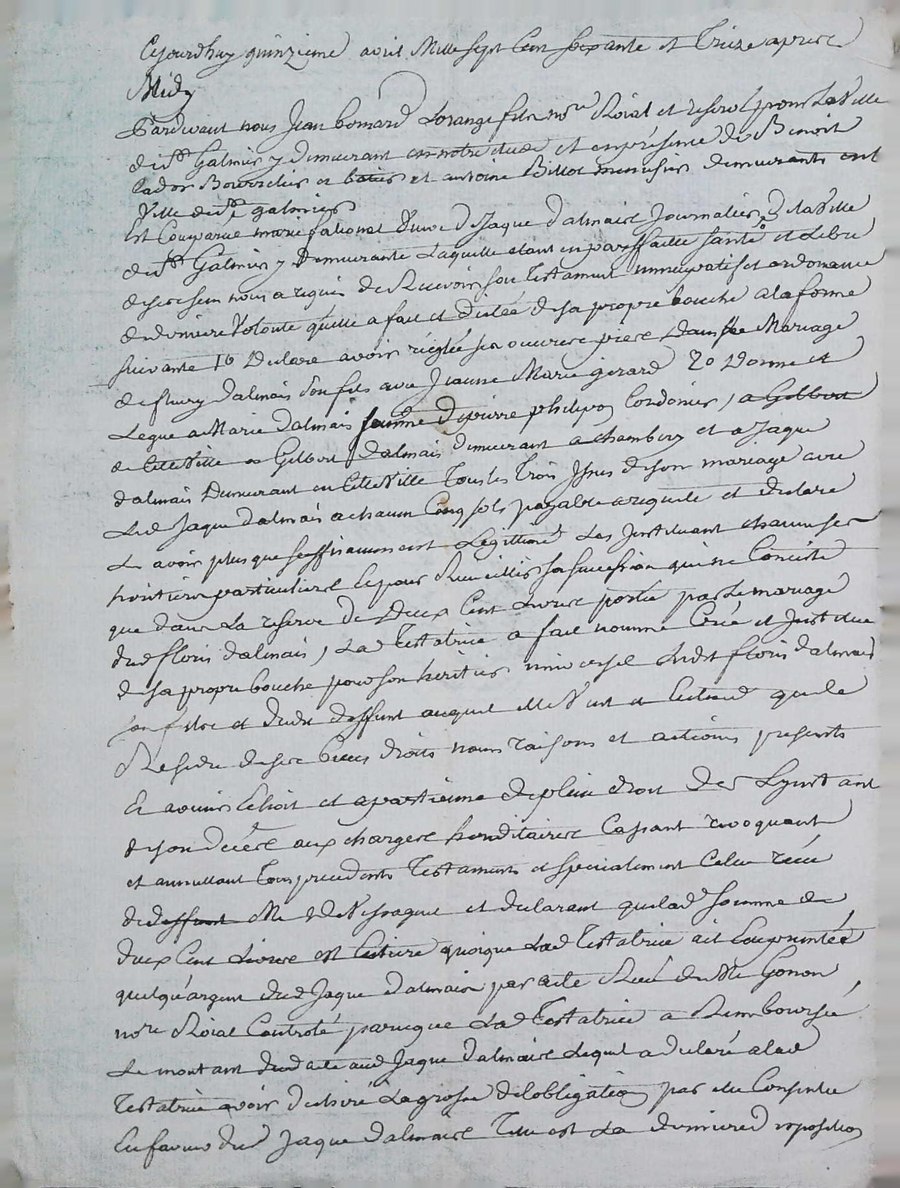 Cejourdhuy quinzieme avril Mille sept Cent soixante et Treize apres
Midy
Pardevant nous Jean bonnard Lorange fils nore Roial et reservé pour la Ville
de st Galmier y demeurant en notre etude et en présence de Benoit
Bourrelier et antoine Billot menuisier demeurants en
Ville de st galmier
Est Comparue marie veuve de Jaque Dalmaise Journalier de la Ville
de st Galmier y Demeurante Laquelle etant en parfaitte santé et Libre
de ses sens nous a requis de Recevoir son Testament nuncupatif et ordonance
de derniere Volonté quelle a fait et dictée de sa propre bouche a la forme
suivante 1o Declare avoir réglée ses oeuvres pies Dans le Mariage
de fleury Dalmais son fils avec Jeanne Marie girard 2o Donne et
Legue a Marie Dalmais femme de pierre philipon Cordonier, a Gilbert
de Cette Ville a Gilbert Dalmais demeurant a chambery et a Jaque
dalmais Demeurant en Cette Ville Tous les Trois Issus de son mariage avec
Led Jaque dalmais a chacun Cinq sols payable et declare
Le avoir plus que suffisamment Legittimé Les Instituant chacun ses
heritiers particuliers pour Recueillir sa succession qui ne Consiste
que dans La reserve de Deux Cent Livres portée par Le mariage
dud floris dalmais, La Testatrice a fait nommé Créé et Institué
de sa propre bouche pour son heritier universel Ledit floris dalmais
son fils et dudit deffunt auquel elle Veut et Entend que le
Residu de ses biens droits noms raisons et actions presents
Et avenirs Echoit et apartienne de plein droit des Linstant
de son décès aux charges hereditaires Cassant revoquant
et annullant Tous precedents Testaments et specialement Celui recu
de deffunt Me et declarant que lad somme de
deux Cent Livres est Entiere quoique Lad Testatrice ait Empruntée
quelqu'argent dud Jaque Dalmais par acte Recu de Me Gonon
nore Roial Controlé parceque Lad Testatrice a Remboursée
Le montant dud acte aud Jaque Dalmaise Lequel a declaré a lad
Testatrice avoir dechiré La grosse de lobligation par elle Consentie
En faveur dud Jaque dalmaise Telle est La derniere disposition